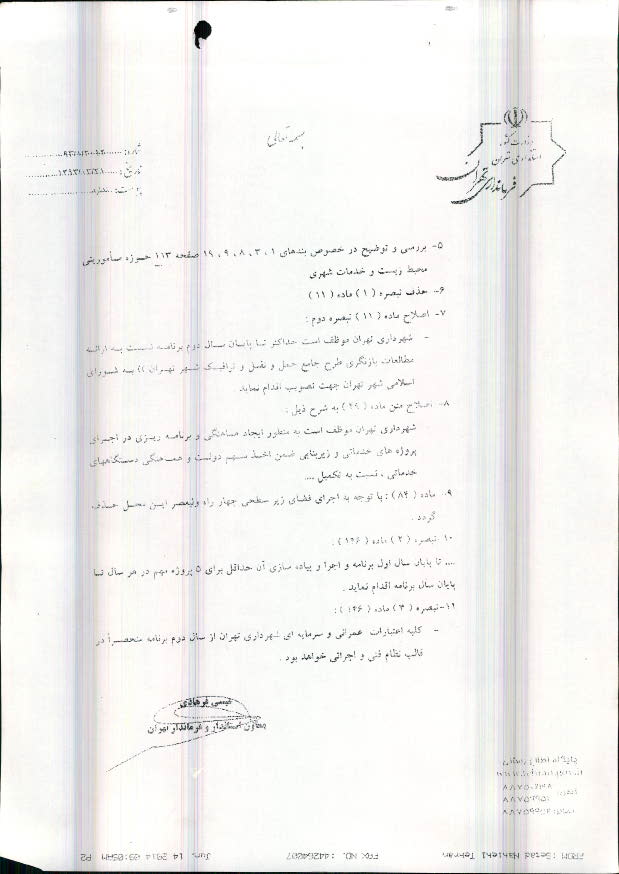 بسمه تعالی
وزارت کشور
استانداری تهران
فرمانداری تهران
شماره:
تاریخ:
پیوست:
۵- بررسی و توضیح در خصوص بندهای ۱ ، ۳ ، ۸ ، ۹ ، ۱۹ صفحه ۱۱۳ حوزه مأموریتی
محیط زیست و خدمات شهری
۶- حذف تبصره ( ۱ ) ماده ( ۱۱ )
۷- اصلاح ماده ( ۱۱ ) تبصره دوم :
- شهرداری تهران موظف است حداکثر تا پایان سال دوم برنامه نسبت به ارائه
مطالعات بازنگری طرح جامع حمل و نقل و ترافیک شهر تهران )) به شورای
اسلامی شهر تهران جهت تصویب اقدام نماید
۸- اصلاح متن ماده ( ۴۹ ) به شرح ذیل :
شهرداری تهران موظف است به منظور ایجاد هماهنگی و برنامه ریزی در اجرای
پروژه های خدماتی و زیربنایی ضمن اخذ سهم دولت و هماهنگی دستگاههای
خدماتی ، نسبت به تکمیل ....
۹- ماده ( ۸۴ ) : با توجه به اجرای فضای زیر سطحی چهار راه ولیعصر این محل حذف
گردد .
۱۰- تبصره ( ۲ ) ماده ( ۱۴۶ ) :
.... تا پایان سال اول برنامه و اجرا و پیاده سازی آن حداقل برای ۵ پروژه مهم در هر سال تا
پایان سال برنامه اقدام نماید .
۱۱- تبصره ( ۳ ) ماده ( ۱۴۶ ) :
- کلیه اعتبارات عمرانی و سرمایه ای شهرداری تهران از سال دوم برنامه منحصراً در
قالب نظام فنی و اجرائی خواهد بود .
عیسی فرهادی
معاون استاندار و فرماندار تهران
FROM :Setad Nahiehi Tehran FAX NO. :44264007 Jun. 14 2014 09:05AM P2